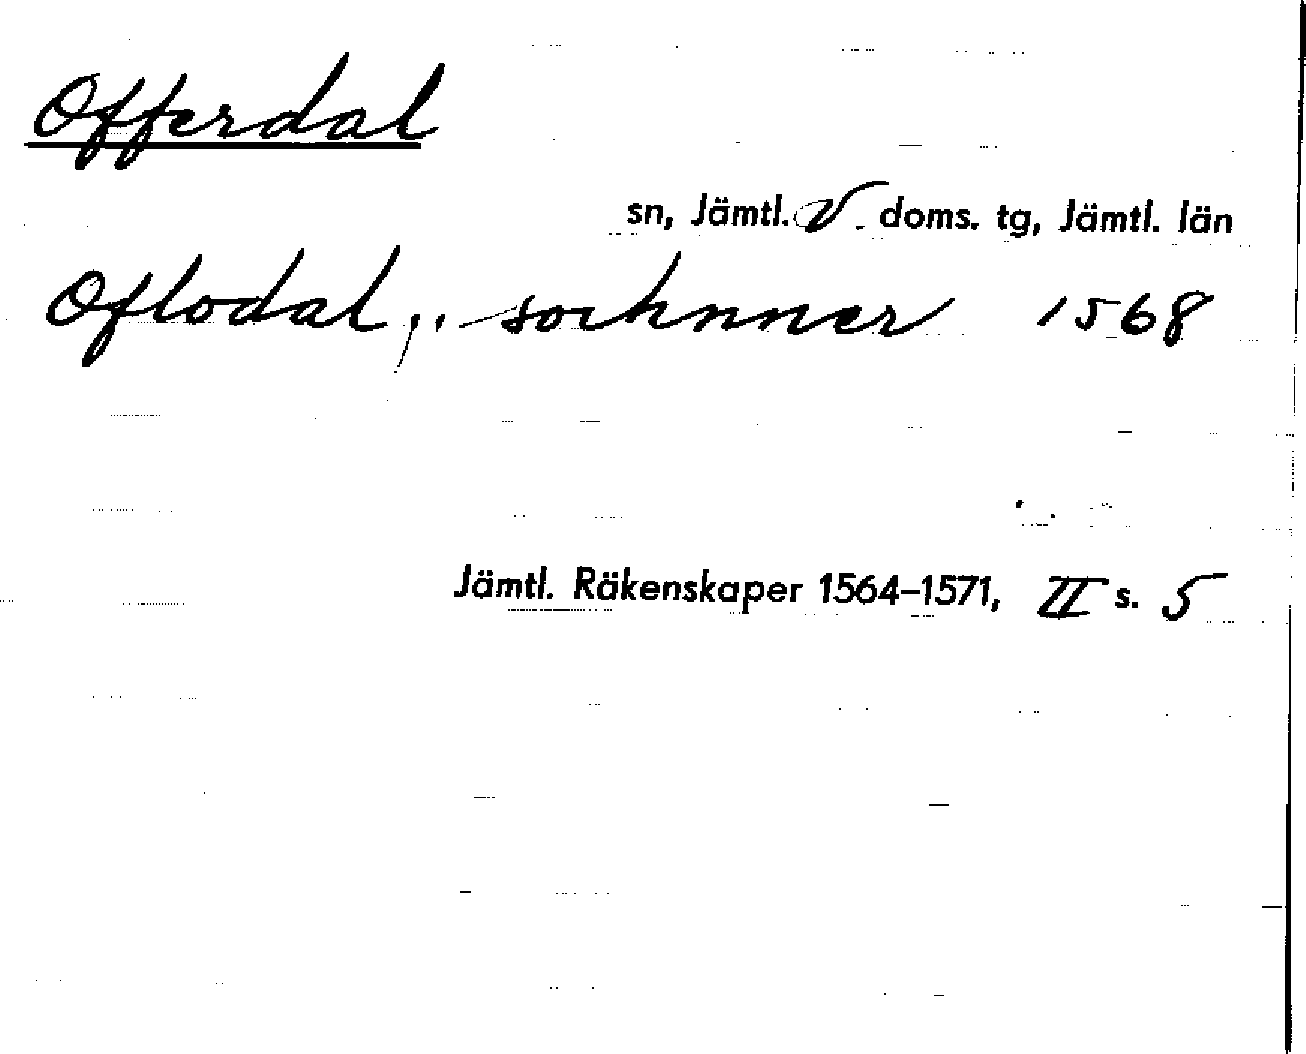 Offerdal
sn, Jämtl. V. doms. tg, Jämtl. län
Oflodal, .. -sochnner 1568
Jämtl. Räkenskaper 1564–1571, II s. 5